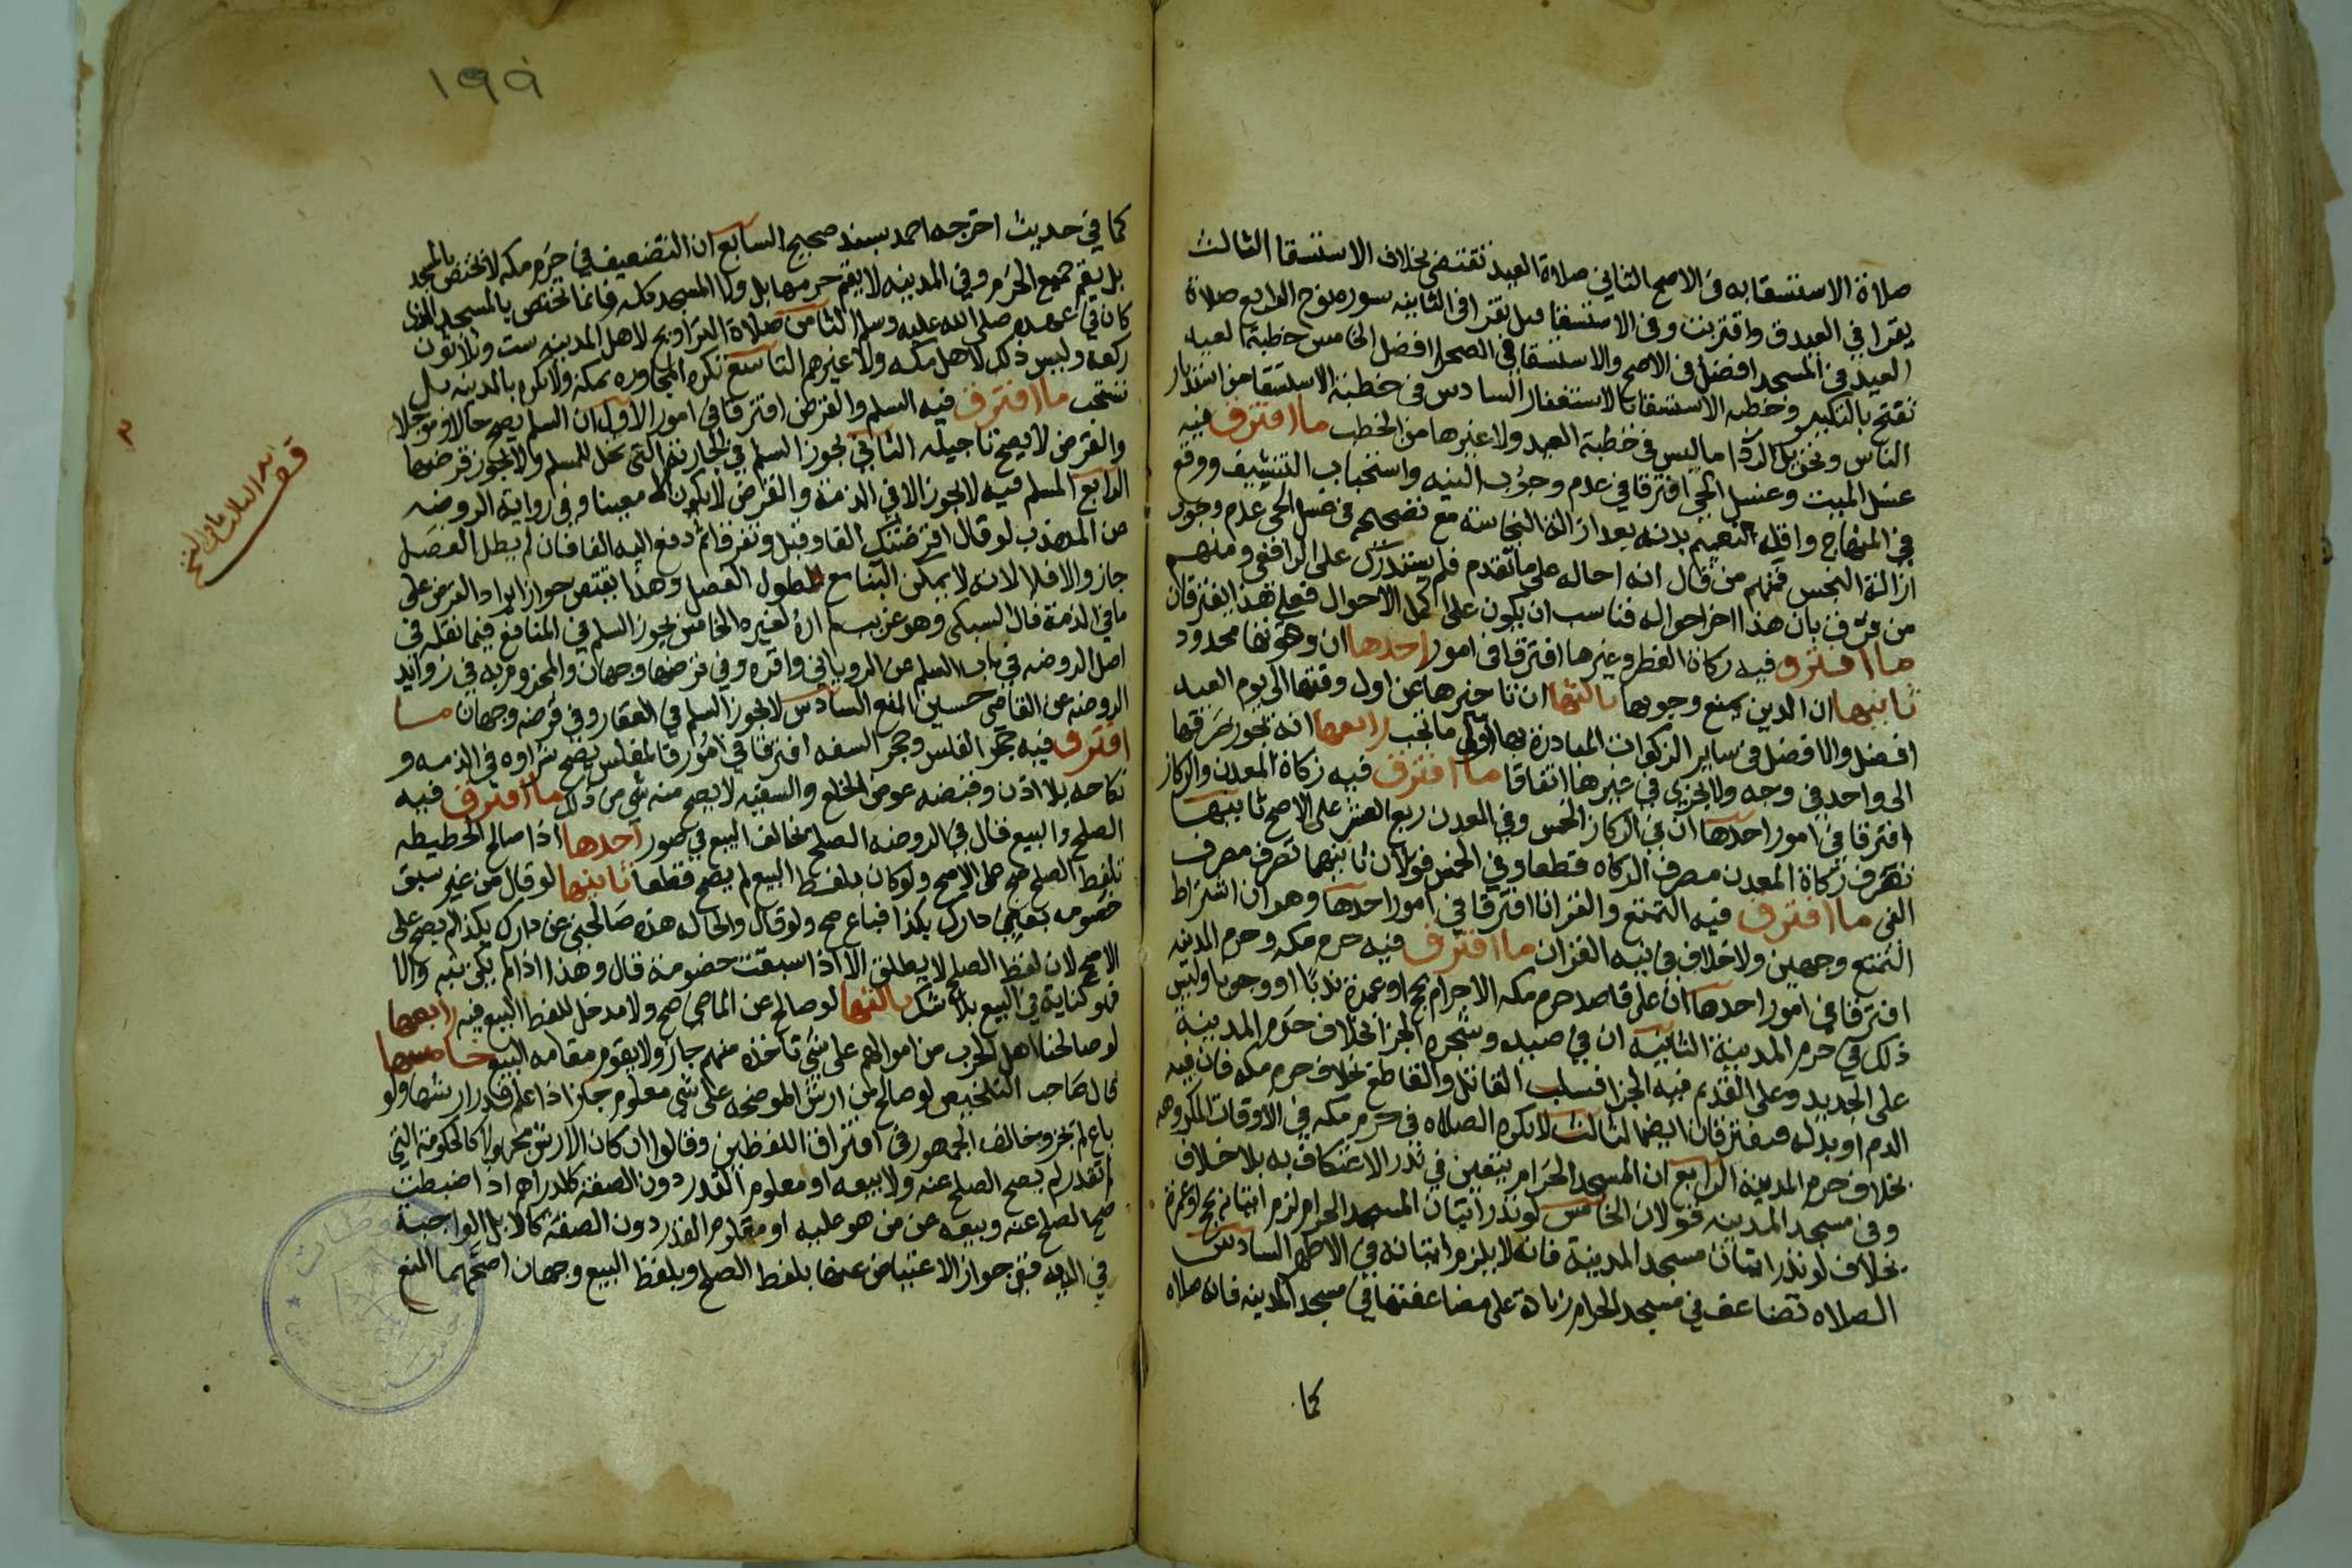 صلاة الاستسقا به في الاصح الثاني صلاة العيد تقتضي بخلاف الاستسقا الثالث
يقرا في العيد ق واقتربت وفي الاستسقا قيل يقرا في الثانيه سوره نوح الرابع صلاة
العيد في المسجد افضل في الاصح والاستسقا في الصحرا افضل الخامس خطبة العيد
تفتح بالتكبير وخطبه الاستسقا بالاستغفار السادس في خطبة الاستسقا من استدبار
الناس وتحويل الردا ما ليس في خطبة العيد ولا غيرها من الخطب ما افترق فيه
غسل الميت وغسل الحي افترقا في عدم وجوب النيه واستحباب التنشيف ووقع
في المنهاج واقله تعميم بدنه بعد ازالة النجاسة مع تصحيحه في غسل الحي عدم وجوب
ازالة النجس فمنهم من قال انه احاله على ما تقدم فلم يستدرك على الرافعي ومنهم
من فرق بان هذا اخر احواله فناسب ان يكون على اكمل الاحوال فعلى هذا يفترقان
ما افترق فيه زكاة الفطر وغيرها افترقا في امور احدها ان وقتها محدود
ثانيها ان الدين يمنع وجوبها ثالثها ان تاخيرها عن اول وقتها الى يوم العيد
افضل والافضل في ساير الزكوات المبادرة بها اول ما تجب رابعها انه يجوز صرفها
الى واحد في وجه ولا يجري في غيرها اتفاقا ما افترق فيه زكاة المعدن والركاز
افترقا في امور احدها ان في الركاز الخمس وفي المعدن ربع العشر على الاصح ثانيها
تصرف زكاة المعدن مصرف الزكاه قطعا وفي الخمس قولان ثانيهما تصرف مصرف
الفي ما افترق فيه التمتع والقران افترقا في امور احدها وهو ان اشتراط
التمتع وجهين ولا خلاف في نيه القران ما افترق فيه حرم مكه وحرم المدينه
افترقا في امور احدها ان على قاصد حرم مكه الاحرام بحج او عمرة ندبا او وجوبا وليس
ذلك في حرم المدينة الثانيه ان في صيده وشجره الجزا بخلاف حرم المدينة
على الجديد وعلى القديم فيه الجزا فسلب القاتل والقاطع بخلاف حرم مكه فان فيه
الدم او بدله فيفترقان ايضا الثالث لا تكره الصلاه في حرم مكه في الاوقات المكروهه
بخلاف حرم المدينة الرابع ان المسجد الحرام يتعين في نذر الاعتكاف به بلا خلاف
وفي مسجد المدينه قولان الخامس لو نذر اتيان المسجد الحرام لزم اتيانه بحج او عمرة
بخلاف لو نذر اتيان مسجد المدينة فانه لا يلزم اتيانه في الاظهر السادس
الصلاه تضاعف في مسجد الحرام زيادة على مضاعفتها في مسجد المدينه فان صلاه
كما
١٩٥
كما في حديث اخرجه احمد بسند صحيح السابع ان التضعيف في حرم مكه لا يختص بالمسجد
بل يعم جميع الحرم وفي المدينه لا يعم حرمها بل ولا المسجد كله فانما يختص بالمسجد الذي
كان في عهده صلى الله عليه وسلم الثامن صلاة التراويح لاهل المدينه ست وثلاثون
ركعه وليس ذلك لاهل مكه ولا غيرهم التاسع تكره المجاوره بمكة ولا تكره بالمدينه بل
تستحب ما افترق فيه السلم والقرض افترقا في امور الاول ان السلم يصح حالا ومؤجلا
والقرض لا يصح تاجيله الثاني يجوز السلم في الجاريه التي تحل للمسلم ولا يجوز قرضها
الرابع المسلم فيه لا يجوز الا في الذمة والقرض لا يكون الا معينا وفي رواية الروضه
من المهذب لو قال اقرضتك الفا وقبل وتفرقا ثم دفع اليه الفا فان لم يطل الفصل
جاز والا فلا لانه لا يمكن البنا مع طول الفصل وهذا يقتضي جواز ايراد القرض على
ما في الذمة قال السبكي وهو غريب لم اره لغيره الخامس يجوز السلم في المنافع فيما نقله في
اصل الروضه في باب السلم عن الروياني واقره وفي قرضها وجهان والمجزوم به في زوائد
الروضه عن القاضي حسين المنع السادس لا يجوز السلم في العقار وفي قرضه وجهان ما
افترق فيه حجر الفلس وحجر السفه افترقا في امور فالمفلس يصح شراوه في الذمه و
نكاحه بلا اذن وقبضه عوض الخلع والسفيه لا يصح منه شي من ذلك ما افترق فيه
الصلح والبيع قال في الروضه الصلح يخالف البيع في صور احدها اذا صالح الحطيطه
بلفظ الصلح صح على الاصح ولو كان بلفظ البيع لم يصح قطعا ثانيها لو قال من غير سبق
خصومه بعني دارك بكذا فباع صح ولو قال والحاله هذه صالحني عن دارك بكذا لم يصح على
الاصح لان لفظ الصلح لا يطلق الا اذا سبقت خصومة قال وهذا اذا لم يكن نيه والا
فهو كناية في البيع بلا شك ثالثها لو صالح عن الماضي صح ولا مدخل للفظ البيع فيه رابعها
لو صالحنا اهل الحرب من اموالهم على شي تاخذه منهم جاز ولا يقوم مقامه البيع خامسها
قال صاحب التلخيص لو صالح من ارش الموضحه على شي معلوم جاز اذا علم قدر ارشها ولو
باع لم يجز وخالف الجمهور في افتراق اللفظين وقالوا ان كان الارش مجهولا كالحكومة التي
لم تقدر لم يصح الصلح عنه ولا بيعه او معلوم القدر دون الصفة كالدراهم اذا ضبطت
صح الصلح عنه وبيعه من من هو عليه او معلوم القدر دون الصفة كالابل الواجبة
في الديه ففي جواز الاعتياض عنها بلفظ الصلح وبلفظ البيع وجهان اصحهما المنع